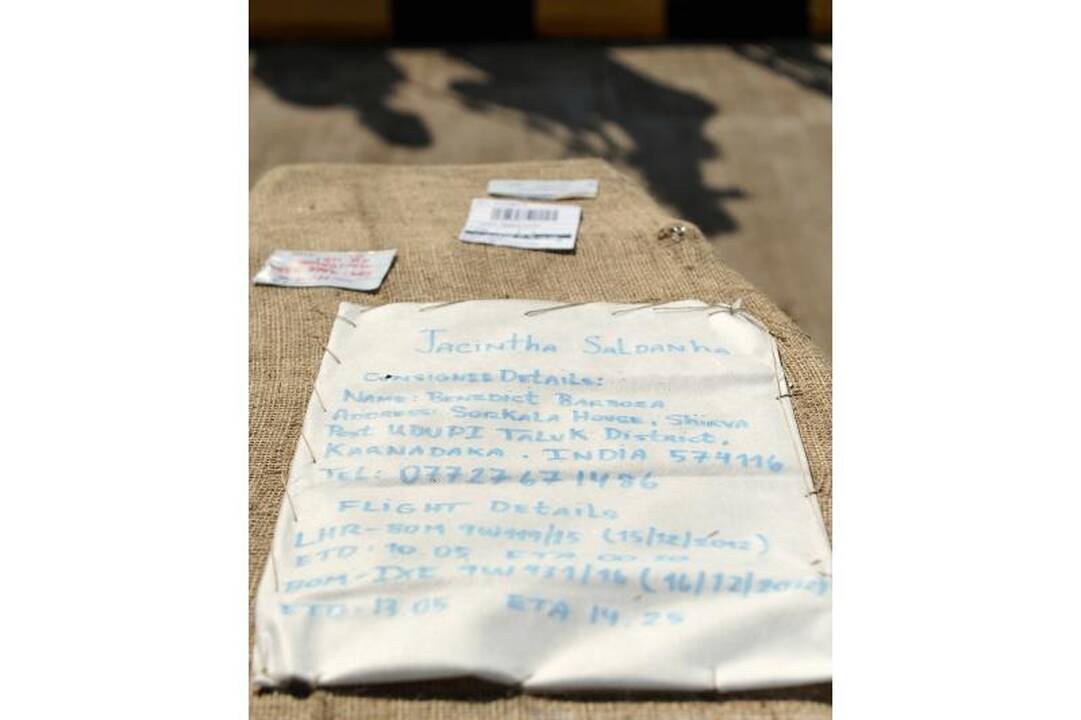 Jacintha Saldanha
Consignee Details:
Name: Benedict Barboza
Address: Sorkala House, Shirva
Post UDUPI Taluk District,
Karnadaka. India 574116
Tel: 07727671486
Flight Details
LHR-BOM 9W119/15 (15/12/2012)
ETD. 10.05 ETA
BOM-IXE 9W 431/16 (16/12/2012)
ETD. 13.05 ETA 14.25